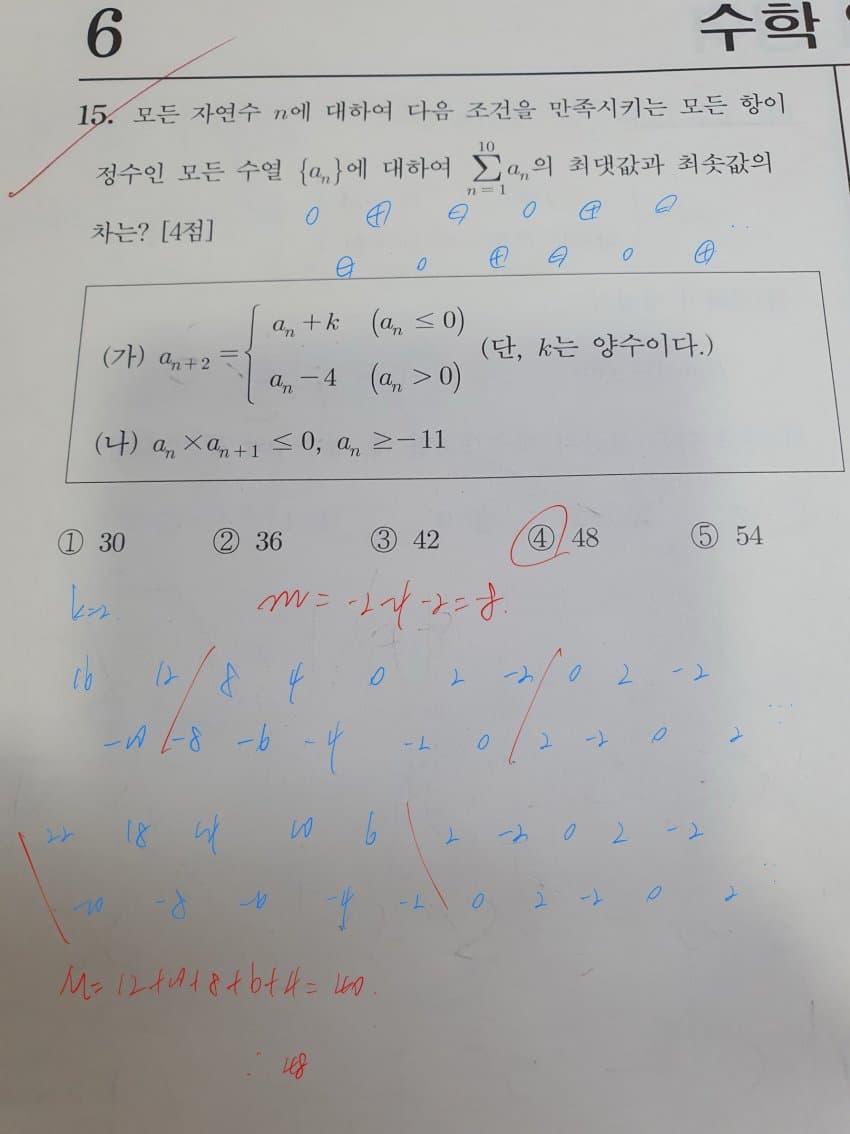 6 수학
15. 모든 자연수 n에 대하여 다음 조건을 만족시키는 모든 항이
정수인 모든 수열 {aₙ}에 대하여 ∑_{n=1}^{10} aₙ의 최댓값과 최솟값의
차는? [4점]
0 ⊕ ⊖ 0 ⊕ ⊖ ..
⊖ 0 ⊕ ⊖ 0 ⊕
(가) aₙ₊₂ = { aₙ+k (aₙ ≤ 0)
aₙ-4 (aₙ > 0) (단, k는 양수이다.)
(나) aₙ×aₙ₊₁ ≤ 0, aₙ ≥ -11
① 30 ② 36 ③ 42 ④ 48 ⑤ 54
k=2
m =
16 12 8 4 0 2 -2 0 2 -2
-8 -6 -4 -2 0 2 -2 0 2 ...
22 18 14 10 6 2 -2 0 2 -2
-8 -4 -2 0 2 -2 0 2
M= 12+10+8+6+4 = 40.
∴ 48